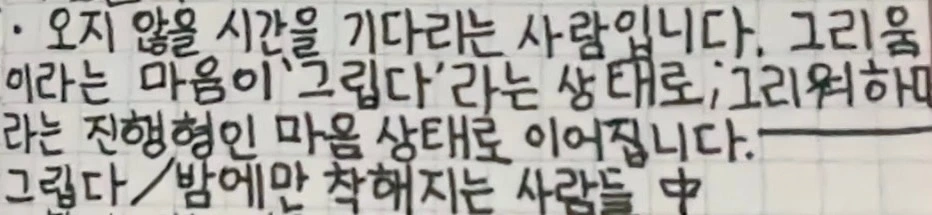 · 오지 않을 시간을 기다리는 사람입니다. 그리움
이라는 마음이 '그립다'라는 상태로, '그리워하며
라는 진행형인 마음 상태로 이어집니다.
그립다/밤에만 착해지는 사람들 中